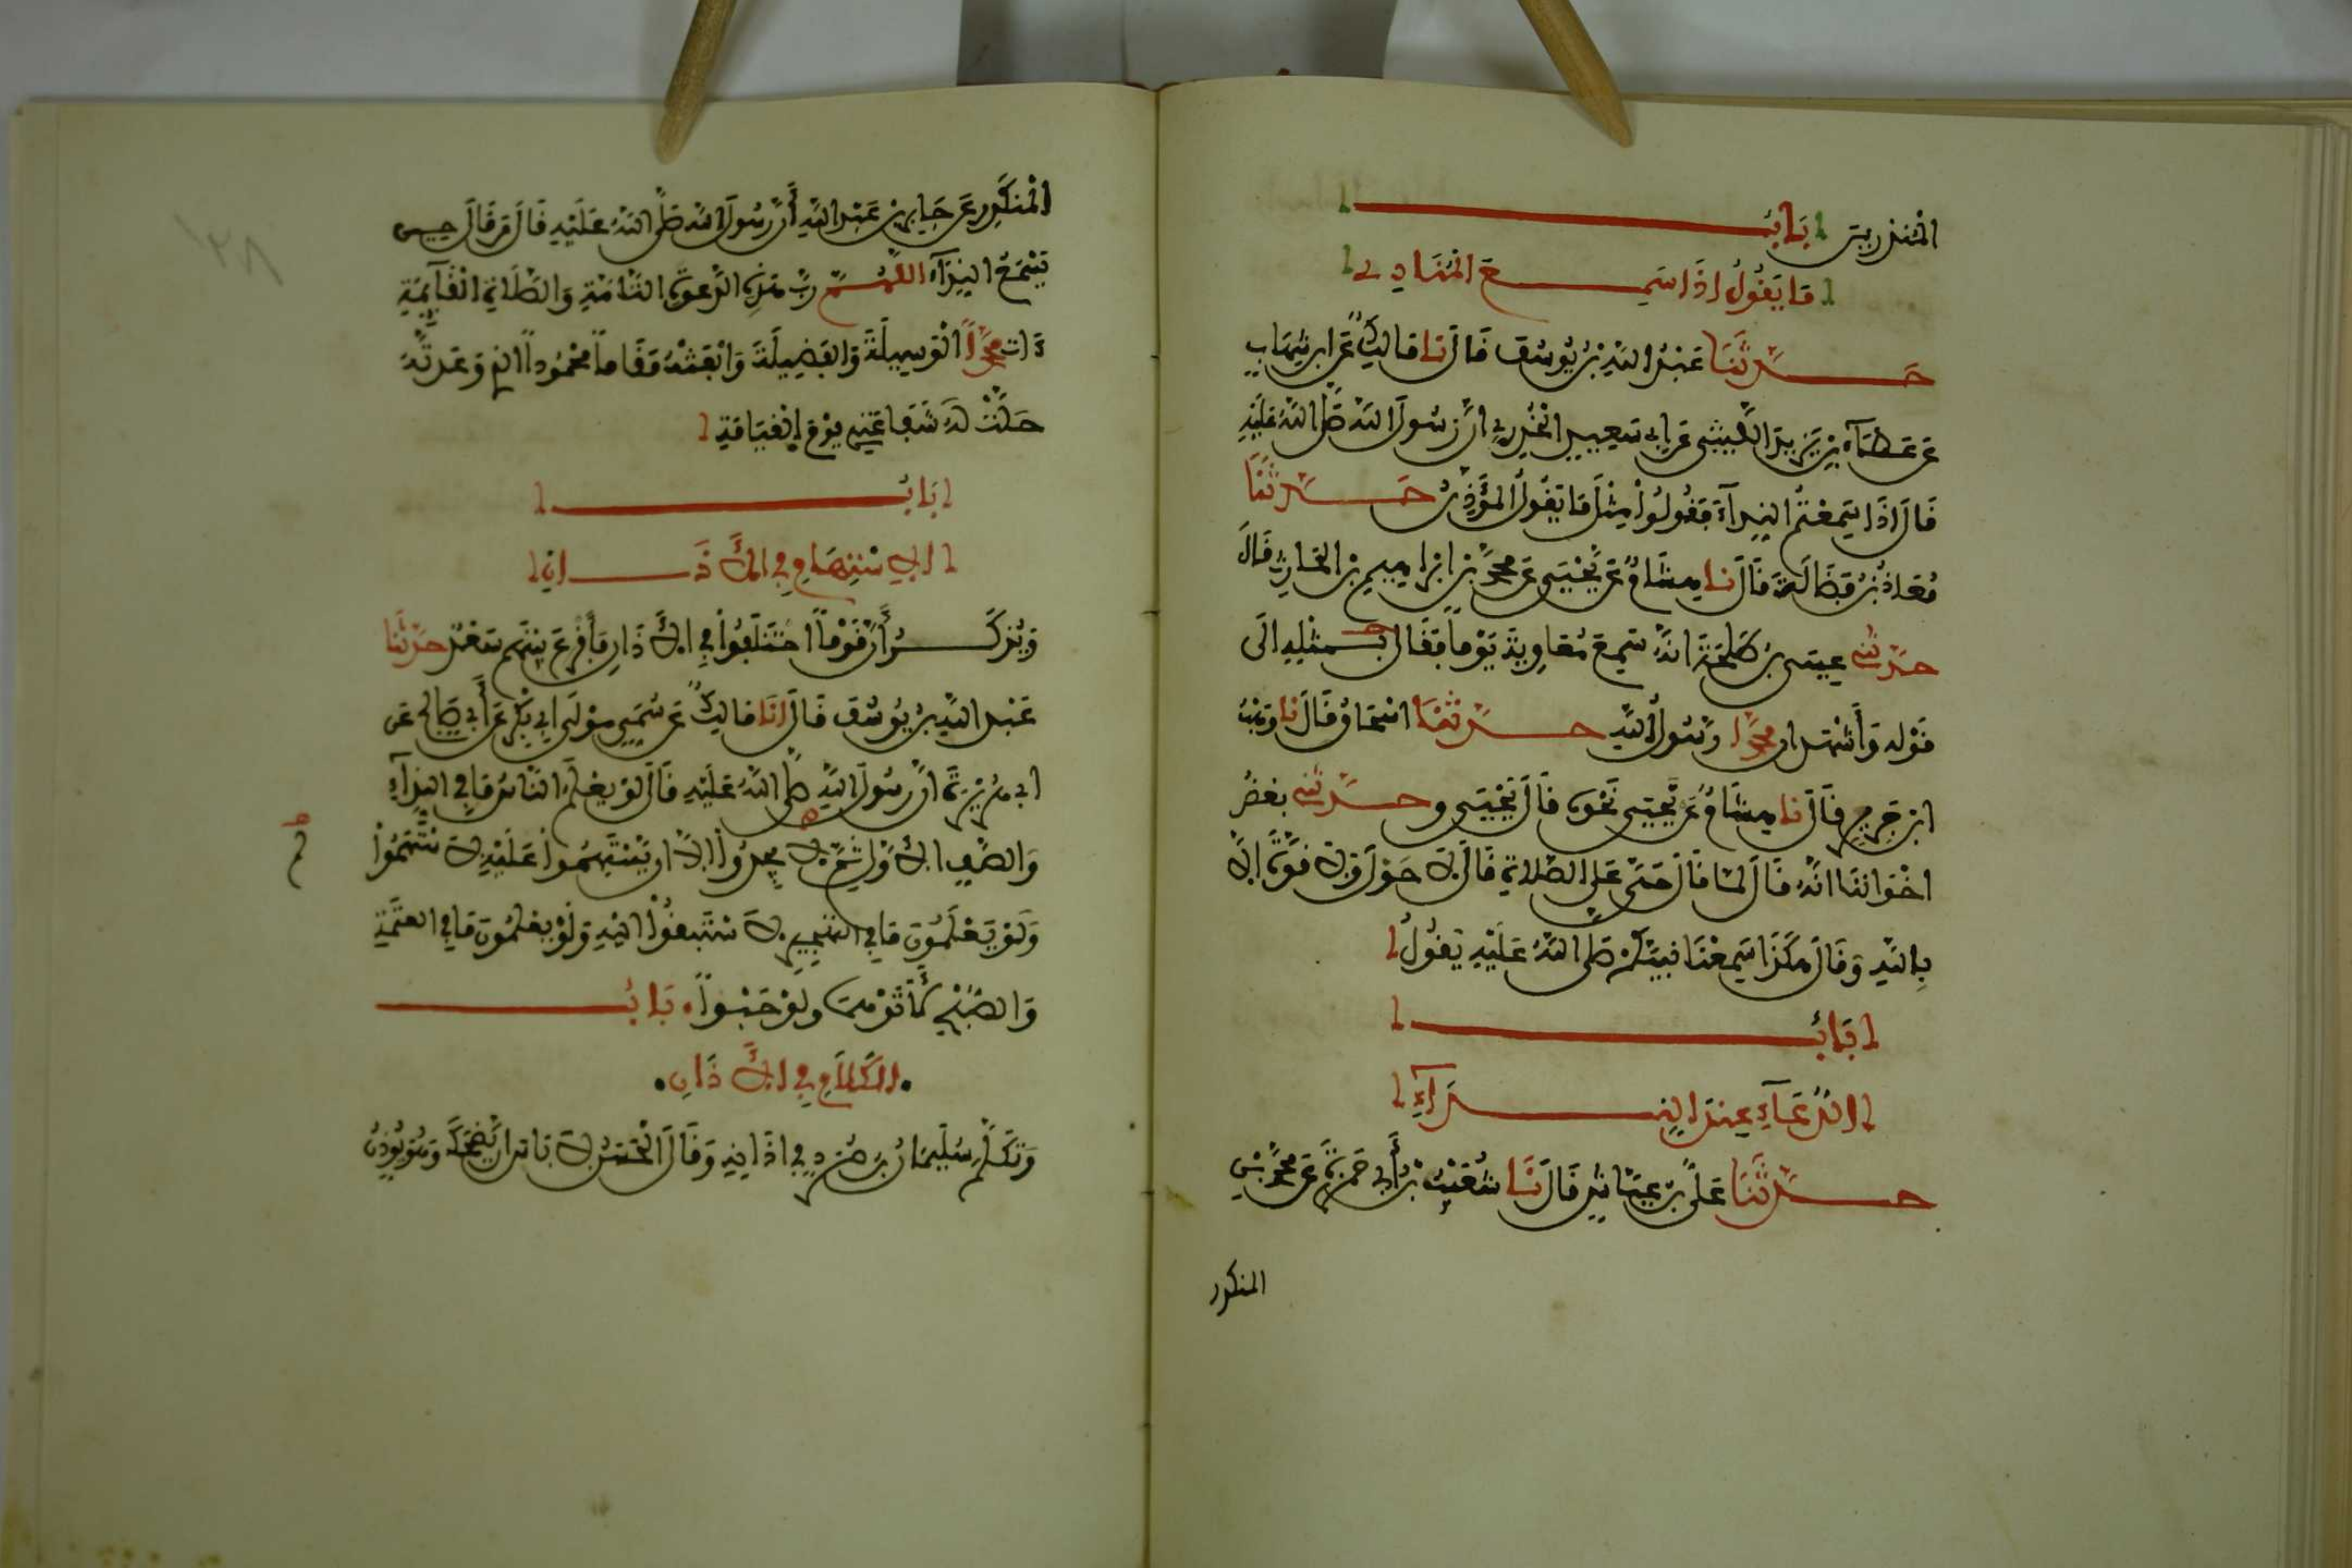 المنذرين باب
ما يقول اذا سمع المنادي
حدثنا عبد الله بن يوسف قال نا مالك عن ابن شهاب
عن عطاء بن يزيد الليثي عن ابي سعيد الخدري ان رسول الله صلى الله عليه
قال اذا سمعتم النداء فقولوا مثل ما يقول المؤذن حدثنا
معاذ بن فضالة قال نا هشام عن يحيى عن محمد بن ابراهيم بن الحارث قال
حدثني عيسى بن طلحة انه سمع معاوية يوما فقال بمثله الى
قوله وأشهد ان محمدا رسول الله حدثنا اسحاق قال نا وهب
ابن جرير قال نا هشام عن يحيى نحوه قال يحيى وحدثني بعض
اخواننا انه قال لما قال حي على الصلاة قال لا حول ولا قوة الا
بالله وقال هكذا سمعنا نبيكم صلى الله عليه يقول
باب
الدعاء عند النداء
حدثنا علي بن عياش قال نا شعيب بن أبي حمزة عن محمد بن
المنكدر
المنكدر عن جابر بن عبد الله أن رسول الله صلى الله عليه قال من قال حين
يسمع النداء اللهم رب هذه الدعوة التامة والصلاة القآئمة
ءات محمدا الوسيلة والفضيلة وابعثه مقاما محمودا الذي وعدته
حلت له شفاعتي يوم القيامة
باب
الاستهام في الأذان
ويذكر أن قوما اختلفوا في الأذان فأقرع بينهم سعد حدثنا
عبد الله بن يوسف قال انا مالك عن سمي مولى ابي بكر عن أبي صالح عن
ابي هريرة ان رسول الله صلى الله عليه قال لو يعلم الناس ما في النداء
والصف الأول ثم لا يجدوا الا ان يستهموا عليه لا ستهموا
ولو يعلمون ما في التهجير لا ستبقوا اليه ولو يعلمون ما في العتمة
والصبح لأتوهما ولو حبوا باب
الكلام في الأذان
وتكلم سليمان بن صرد في اذانه وقال الحسن لا باس ان يضحك وهو يؤذن